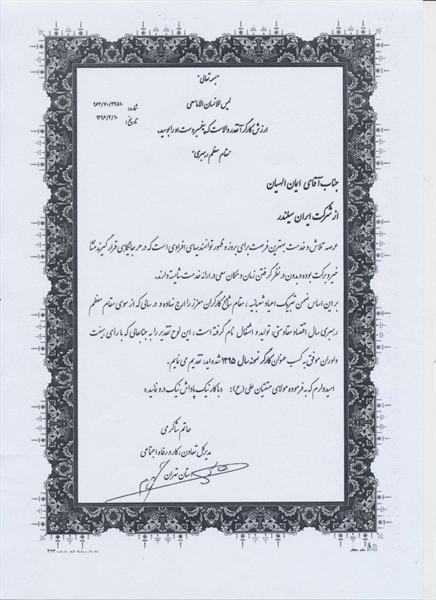 بسمه تعالی
لیس للانسان الا ما سعی
شماره: ۹۶۲/۷۰/۲۲۸۱۰
تاریخ: ۱۳۹۶/۲/۱۰
ارزش کارگر آنقدر والاست که پیغمبر دست او را بوسید.
"مقام معظم رهبری"
جناب آقای ایمان الهیان
از شرکت ایران سیلندر
عرصه تلاش و خدمت بهترین فرصت برای بروز و ظهور توانمندیهای افرادی است که در هر جایگاهی قرار گیرند منشأ
خیر و برکت بوده و بدون در نظر گرفتن زمان و مکان سعی در ارائه خدمت شایسته دارند.
بر این اساس ضمن تبریک اعیاد شعبانیه، مقام شامخ کارگران معزز را ارج نهاده و در سالی که از سوی مقام معظم
رهبری سال اقتصاد مقاومتی، تولید و اشتغال نام گرفته است، این لوح تقدیر را به جنابعالی که با رای هیئت
داوران موفق به کسب عنوان کارگر نمونه سال ۱۳۹۵ شده اید، تقدیم می نمایم.
امیدوارم که به فرموده مولای متقیان علی(ع): «با کار نیک پاداش نیک درو نمایید»
حاتم شاکرمی
مدیرکل تعاون، کار و رفاه اجتماعی
استان تهران